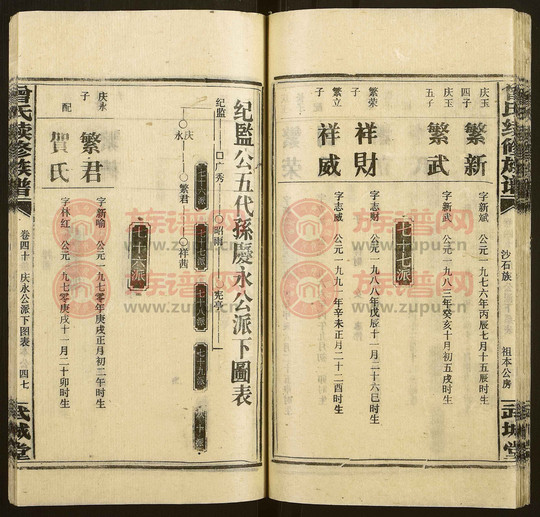 曾氏续修族谱
沙石族
祖本公房
武城堂
庆玉
四子
繁新
字新斌 公元一九七六年丙辰七月十五辰时生
庆玉
五子
繁武
字新武 公元一九八三年癸亥十月初五戌时生
七十七派
繁荣
子
祥财
字志财 公元一九八八年戊辰十一月二十六巳时生
繁立
子
祥威
字志威 公元一九九一年辛未正月二十二酉时生
纪監公五代孫慶永公派下圖表
纪監
广秀
昭雨
宪掌
庆永
繁君
祥茜
七十七派
七十八派
七十九派
七十六派
庆永
子
繁君
字新喻 公元一九七零年庚戌正月初二午时生
配
贺氏
字林红 公元一九七零庚戌十一月二十卯时生
曾氏续修族谱
卷四十
庆永公派下图表
四七
武城堂
族谱网
www.zupu.cn
族谱网
www.zupu.cn